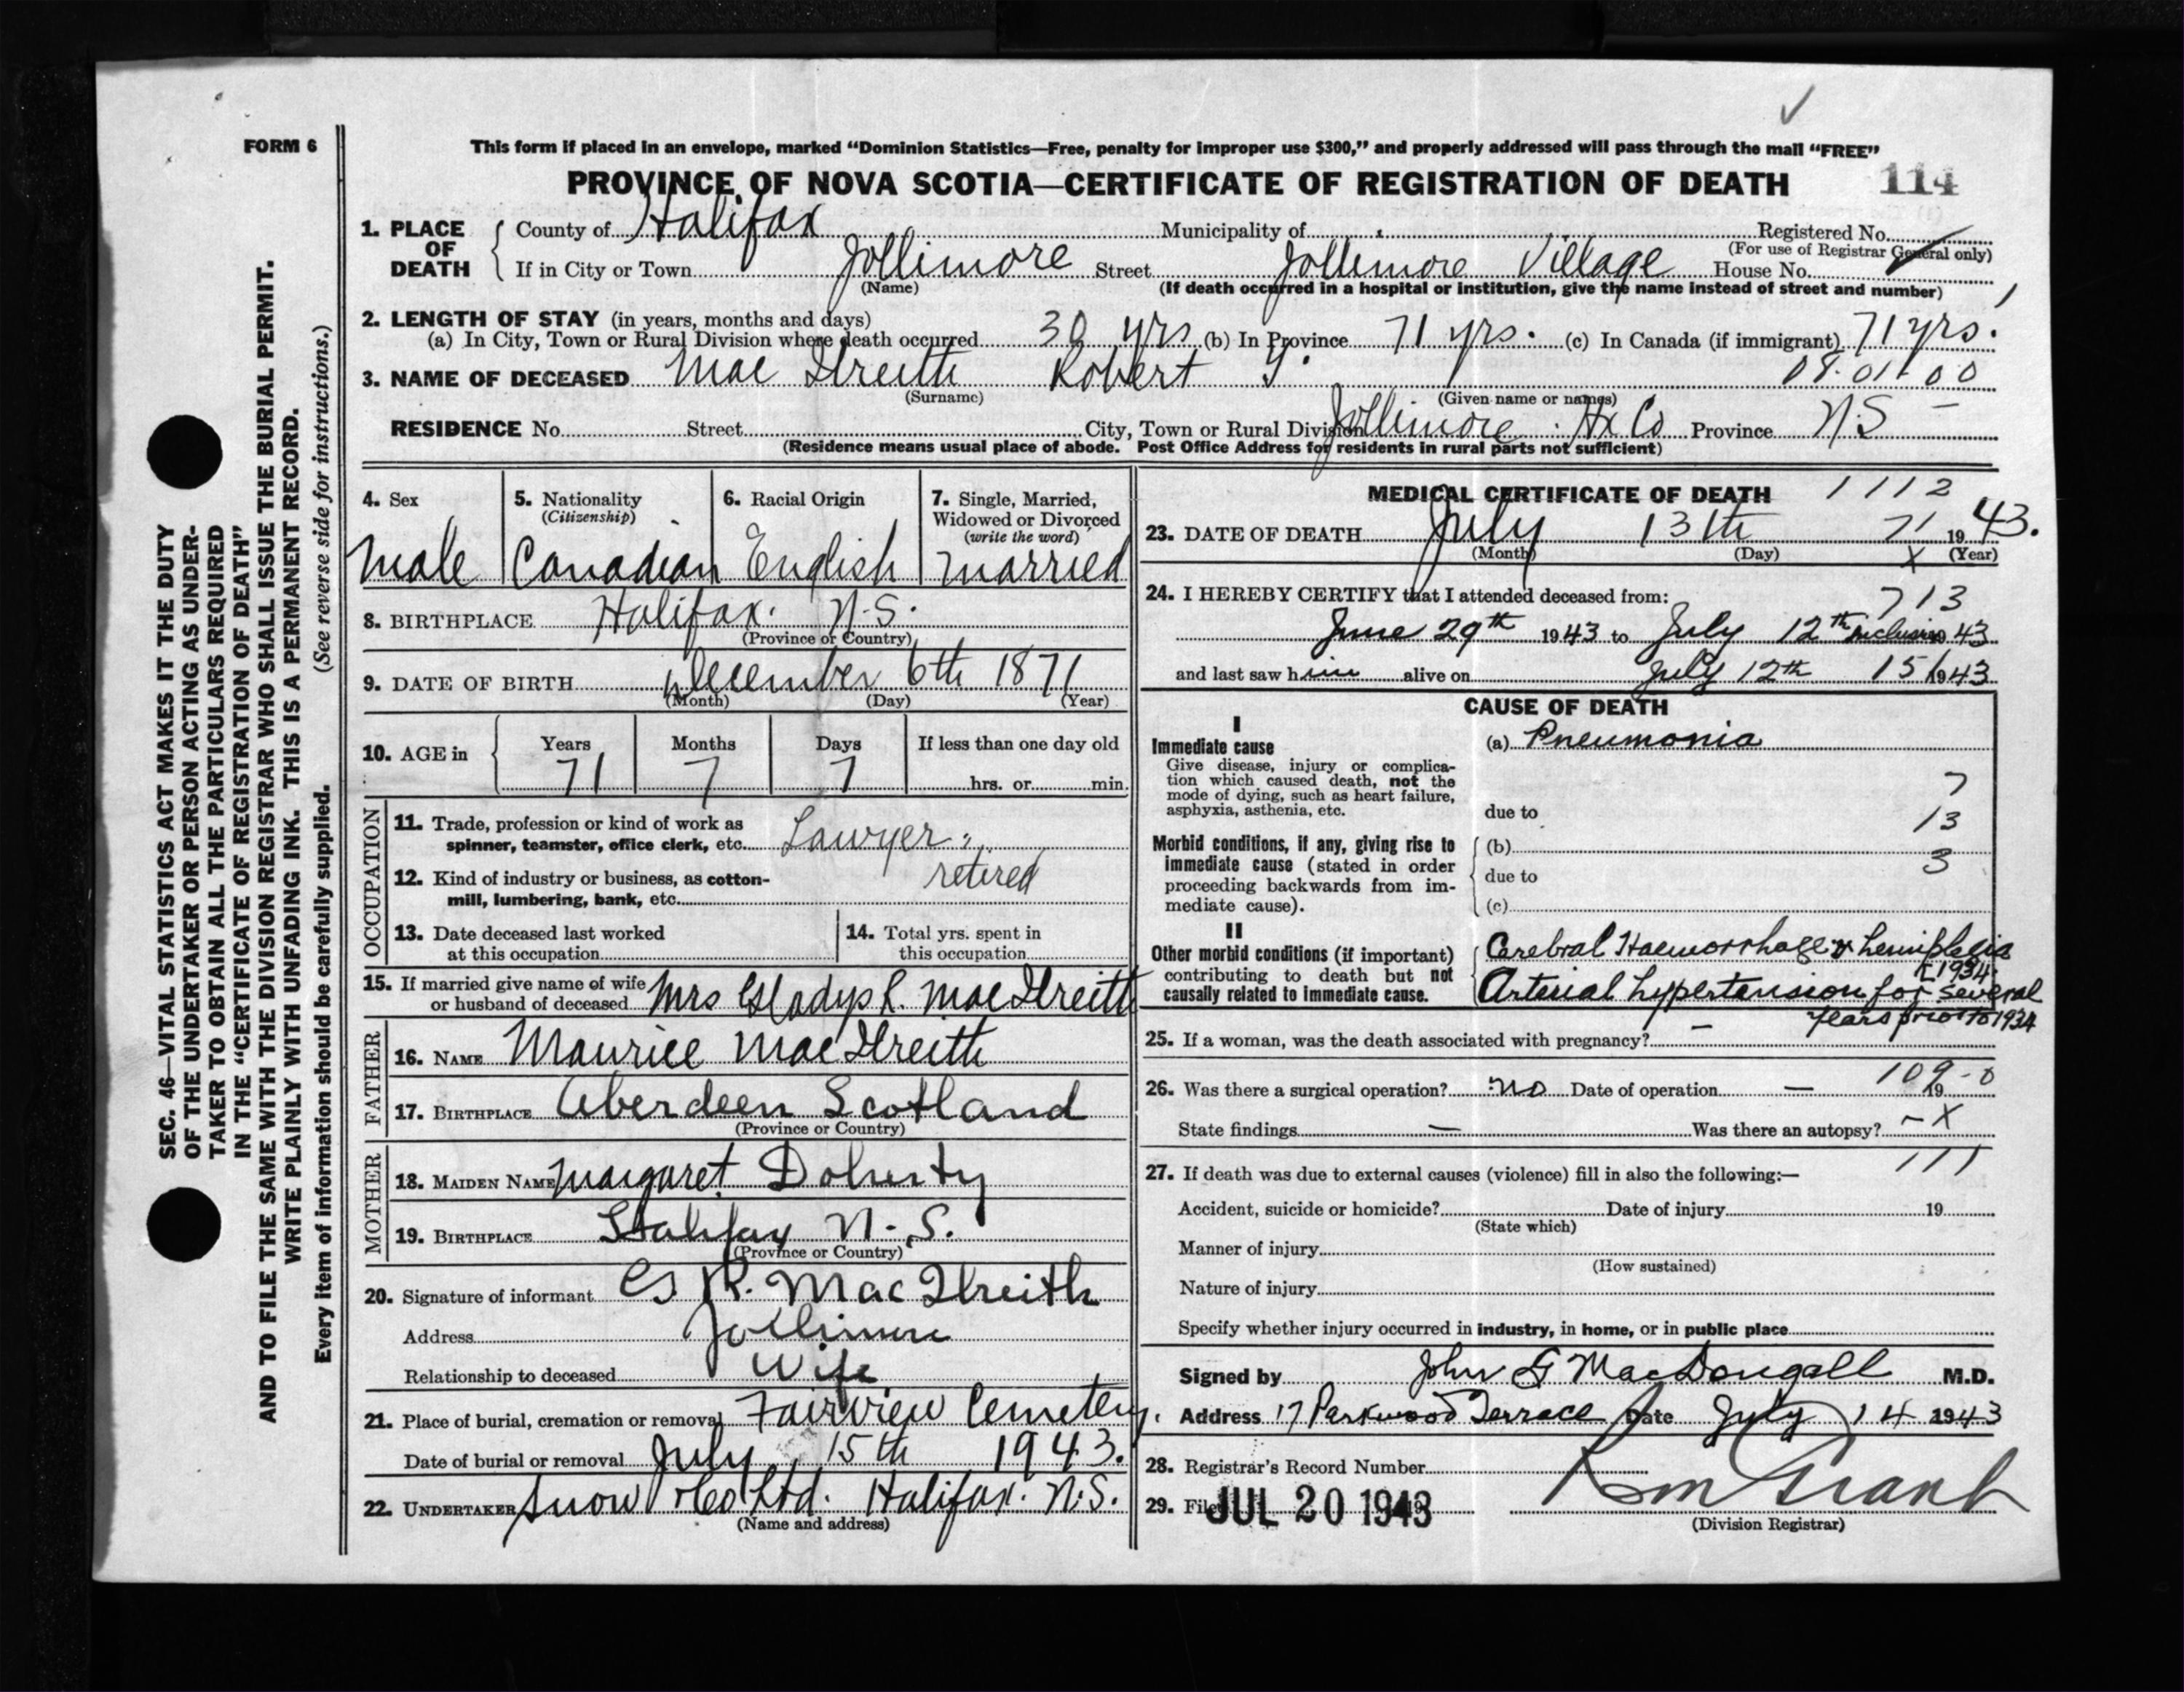 FORM 6
This form if placed in an envelope, marked “Dominion Statistics—Free, penalty for improper use $300,” and properly addressed will pass through the mail “FREE”
PROVINCE OF NOVA SCOTIA—CERTIFICATE OF REGISTRATION OF DEATH 114
1. PLACE OF DEATH
County of Halifax Municipality of Registered No.
(For use of Registrar General only)
If in City or Town Jollimore Street Jollimore Village House No.
(Name) (If death occurred in a hospital or institution, give the name instead of street and number)
2. LENGTH OF STAY (in years, months and days)
(a) In City, Town or Rural Division where death occurred 30 yrs (b) In Province 71 yrs. (c) In Canada (if immigrant) 71 yrs.
3. NAME OF DECEASED Mac Ilreith Robert T. 08.01.00
(Surname) (Given name or names)
RESIDENCE No. Street City, Town or Rural Division Jollimore. Hx Co Province N.S —
(Residence means usual place of abode. Post Office Address for residents in rural parts not sufficient)
4. Sex
male
5. Nationality
(Citizenship)
Canadian
6. Racial Origin
English
7. Single, Married,
Widowed or Divorced
(write the word)
married
8. BIRTHPLACE Halifax. N.S.
(Province or Country)
9. DATE OF BIRTH December 6th 1871
(Month) (Day) (Year)
10. AGE in
Years Months Days If less than one day old
71 7 7 hrs. or min.
OCCUPATION
11. Trade, profession or kind of work as
spinner, teamster, office clerk, etc. Lawyer
retired
12. Kind of industry or business, as cotton-
mill, lumbering, bank, etc.
13. Date deceased last worked
at this occupation
14. Total yrs. spent in
this occupation
15. If married give name of wife
or husband of deceased Mrs Gladys R. MacIlreith
FATHER
16. NAME Maurice MacIlreith
17. BIRTHPLACE Aberdeen Scotland
(Province or Country)
MOTHER
18. MAIDEN NAME Margaret Doherty
19. BIRTHPLACE Halifax N.S.
(Province or Country)
20. Signature of informant G R. MacIlreith
Address Jollimore
Relationship to deceased Wife
21. Place of burial, cremation or removal Fairview Cemetery.
Date of burial or removal July 15th 1943.
22. UNDERTAKER Snow & Co Ltd. Halifax. N.S.
(Name and address)
MEDICAL CERTIFICATE OF DEATH 1112
23. DATE OF DEATH July 13th 71 1943.
(Month) (Day) X (Year)
24. I HEREBY CERTIFY that I attended deceased from: 713
June 29th 1943 to July 12th inclusive 1943
and last saw him alive on July 12th 151 1943
CAUSE OF DEATH
I
Immediate cause
Give disease, injury or complica-
tion which caused death, not the
mode of dying, such as heart failure,
asphyxia, asthenia, etc.
(a) Pneumonia
7
due to
13
Morbid conditions, if any, giving rise to
immediate cause (stated in order
proceeding backwards from im-
mediate cause).
(b)
3
due to
(c)
II
Other morbid conditions (if important)
contributing to death but not
causally related to immediate cause.
Cerebral Haemorrhage & hemiplegia
1934
Arterial hypertension for several
years prior to 1934
25. If a woman, was the death associated with pregnancy? —
26. Was there a surgical operation? no Date of operation — 19
109-0
State findings — Was there an autopsy? – X
111
27. If death was due to external causes (violence) fill in also the following:—
Accident, suicide or homicide? Date of injury 19
(State which)
Manner of injury
(How sustained)
Nature of injury
Specify whether injury occurred in industry, in home, or in public place
Signed by John G MacDougall M.D.
Address 17 Parkwood Terrace Date July 14 1943
28. Registrar's Record Number
29. Filed JUL 20 1943
(Division Registrar)
SEC. 46—VITAL STATISTICS ACT MAKES IT THE DUTY
OF THE UNDERTAKER OR PERSON ACTING AS UNDER-
TAKER TO OBTAIN ALL THE PARTICULARS REQUIRED
IN THE “CERTIFICATE OF REGISTRATION OF DEATH”
AND TO FILE THE SAME WITH THE DIVISION REGISTRAR WHO SHALL ISSUE THE BURIAL PERMIT.
WRITE PLAINLY WITH UNFADING INK. THIS IS A PERMANENT RECORD.
Every item of information should be carefully supplied. (See reverse side for instructions.)